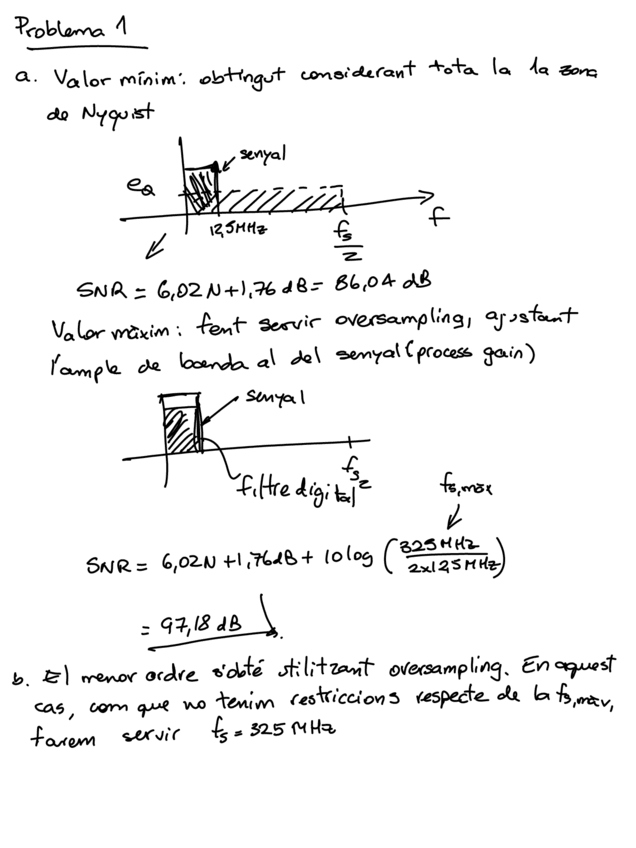 Problema 1
a. Valor mínim: obtingut considerant tota la 1a zona
de Nyquist
senyal
eQ
12,5MHz
fs/2
f
SNR = 6,02 N + 1,76 dB = 86,04 dB
Valor màxim: fent servir oversampling, ajustant
l'ample de banda al del senyal (process gain)
senyal
fs/2
filtre digital
fs,màx
SNR = 6,02N + 1,76dB + 10 log (325 MHz / 2x12,5 MHz)
= 97,18 dB
b. El menor ordre s'obté utilitzant oversampling. En aquest
cas, com que no tenim restriccions respecte de la fs,màx,
farem servir fs = 325 MHz